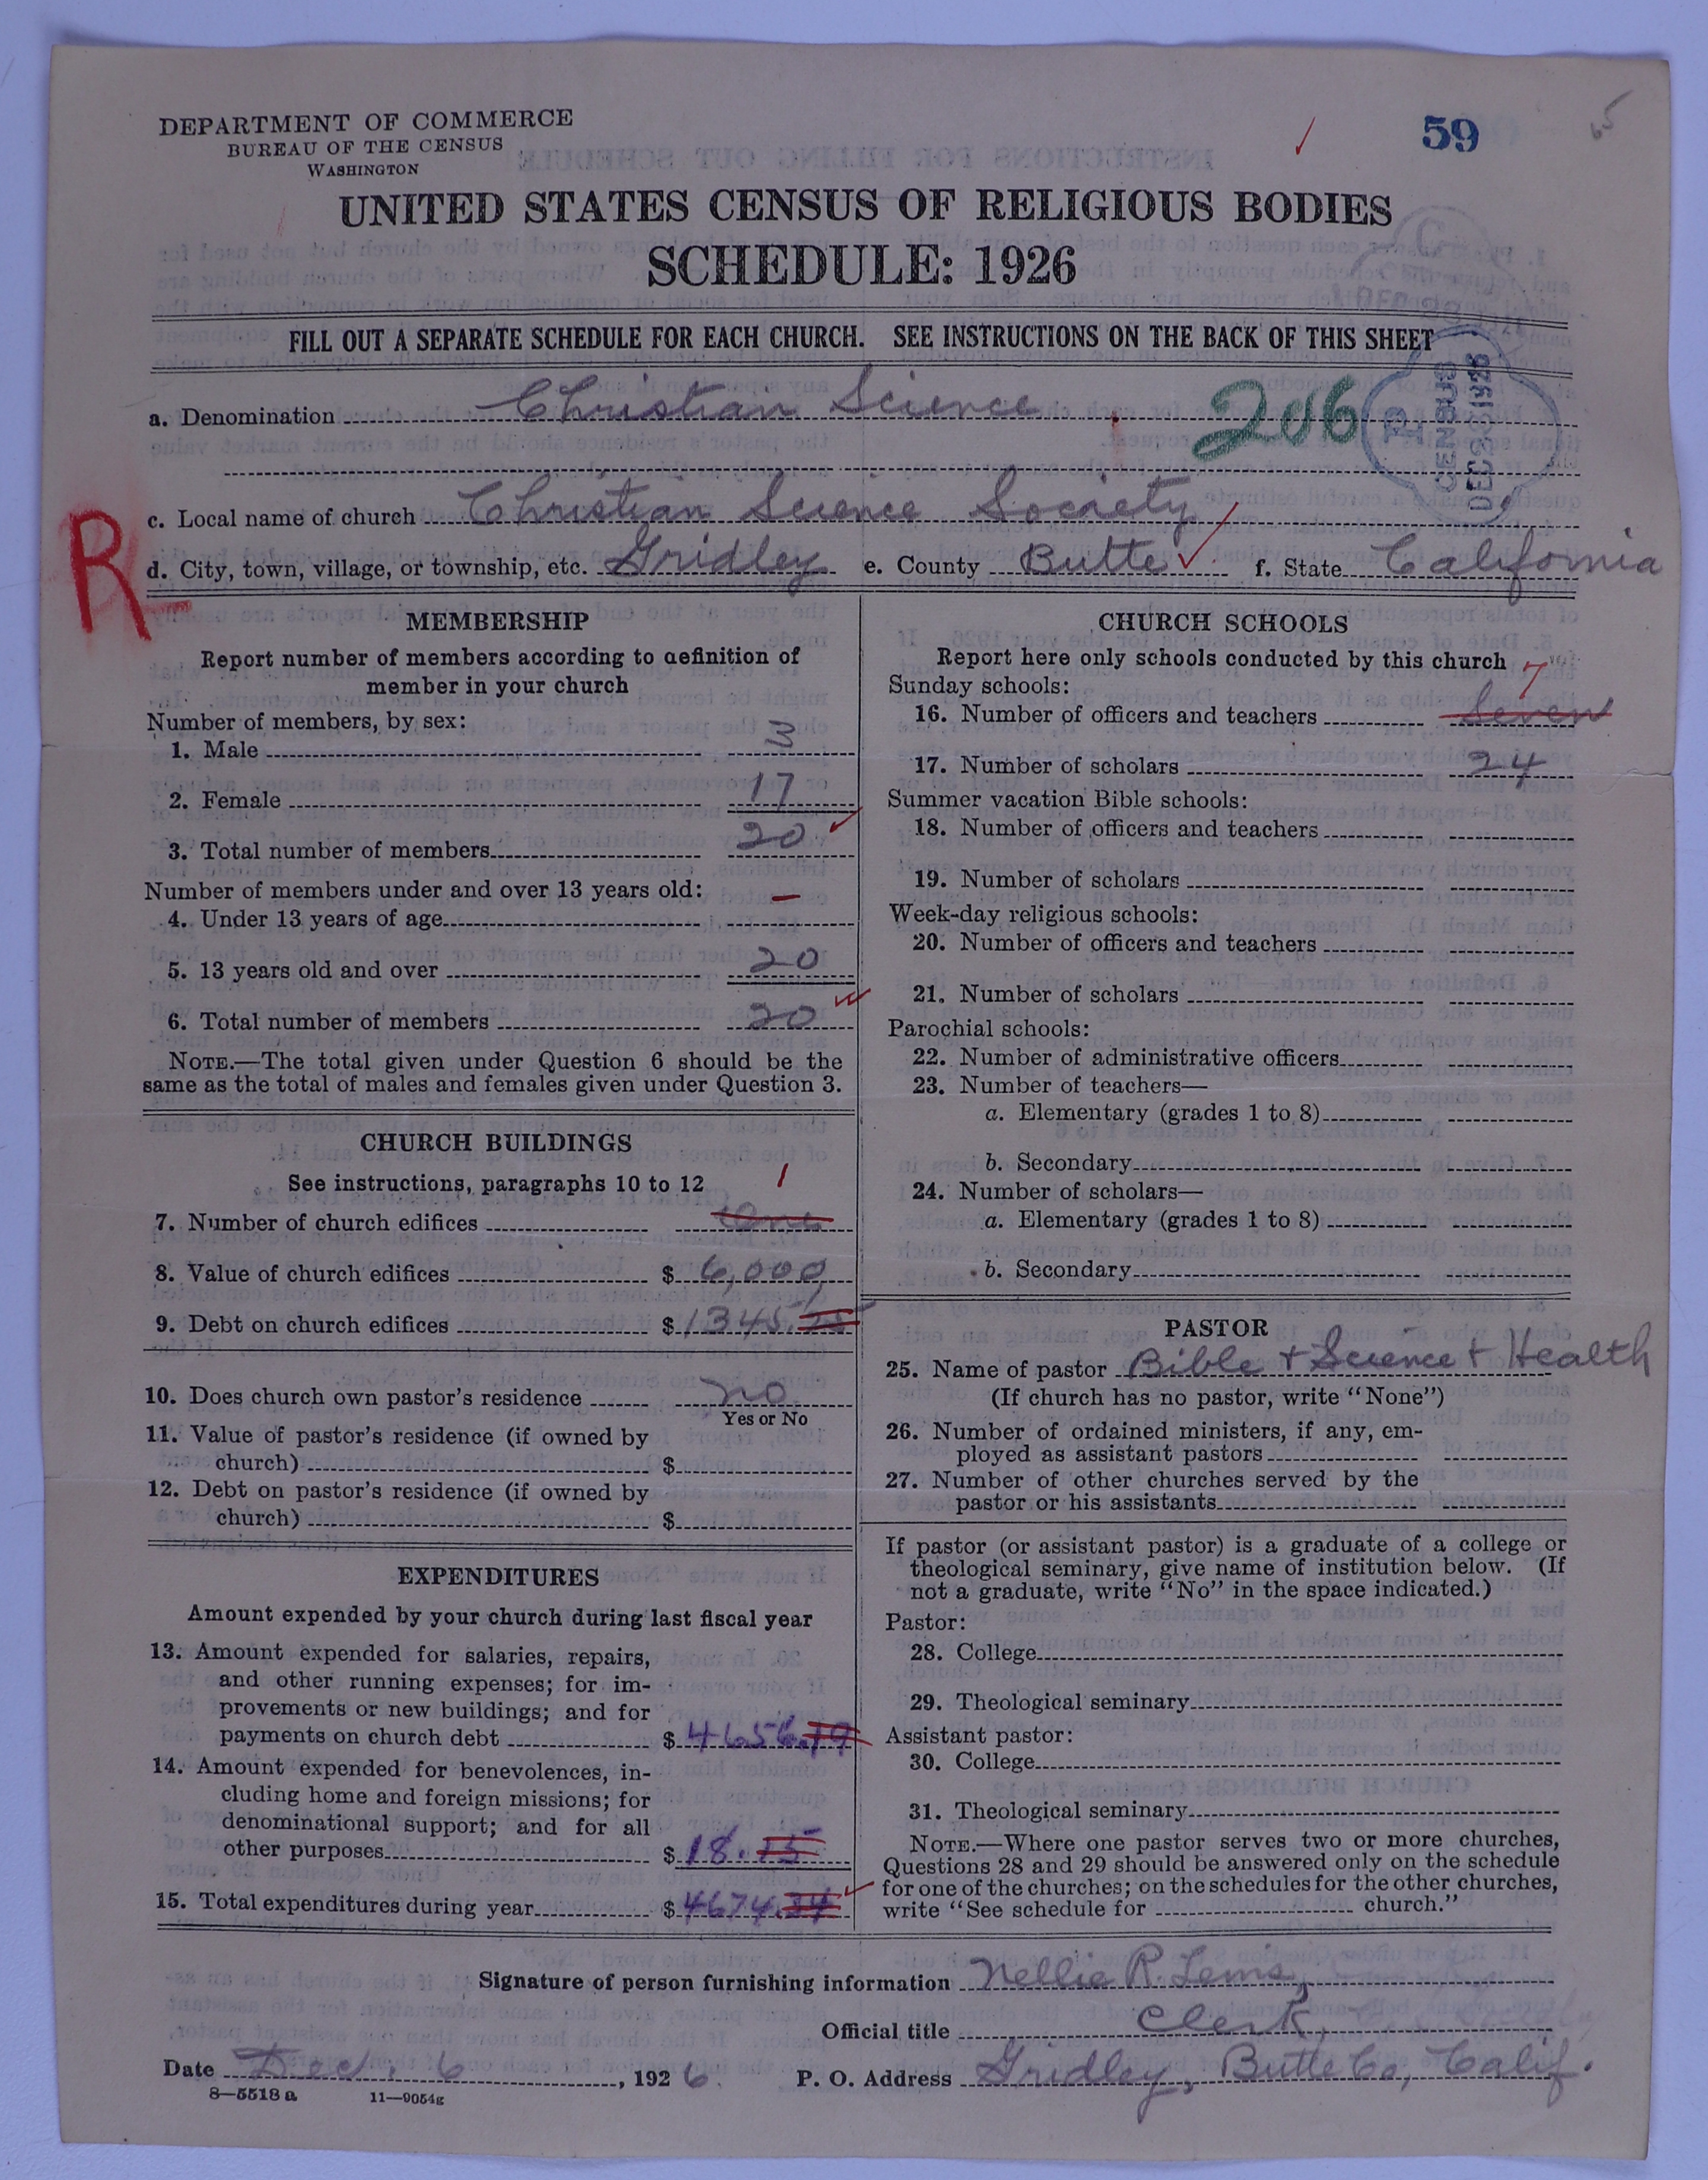 DEPARTMENT OF COMMERCE
BUREAU OF THE CENSUS
WASHINGTON
59
UNITED STATES CENSUS OF RELIGIOUS BODIES
SCHEDULE: 1926
FILL OUT A SEPARATE SCHEDULE FOR EACH CHURCH. SEE INSTRUCTIONS ON THE BACK OF THIS SHEET
a. Denomination Christian Science 206
CENSUS
DEC 23 1926
c. Local name of church Christian Science Society
R
d. City, town, village, or township, etc. Gridley e. County Butte f. State California
MEMBERSHIP
Report number of members according to definition of
member in your church
Number of members, by sex:
1. Male 3
2. Female 17
3. Total number of members 20
Number of members under and over 13 years old:
4. Under 13 years of age —
5. 13 years old and over 20
6. Total number of members 20
NOTE.—The total given under Question 6 should be the
same as the total of males and females given under Question 3.
CHURCH BUILDINGS
See instructions, paragraphs 10 to 12
1
7. Number of church edifices One
8. Value of church edifices $ 6,000
9. Debt on church edifices $ 1345.
10. Does church own pastor's residence no
Yes or No
11. Value of pastor's residence (if owned by
church) $
12. Debt on pastor's residence (if owned by
church) $
EXPENDITURES
Amount expended by your church during last fiscal year
13. Amount expended for salaries, repairs,
and other running expenses; for im-
provements or new buildings; and for
payments on church debt $ 4656.19
14. Amount expended for benevolences, in-
cluding home and foreign missions; for
denominational support; and for all
other purposes $ 18.15
15. Total expenditures during year $ 4674.34
CHURCH SCHOOLS
Report here only schools conducted by this church
7
Sunday schools:
16. Number of officers and teachers Seven
17. Number of scholars 24
Summer vacation Bible schools:
18. Number of officers and teachers
19. Number of scholars
Week-day religious schools:
20. Number of officers and teachers
21. Number of scholars
Parochial schools:
22. Number of administrative officers
23. Number of teachers—
a. Elementary (grades 1 to 8)
b. Secondary
24. Number of scholars—
a. Elementary (grades 1 to 8)
b. Secondary
PASTOR
25. Name of pastor Bible + Science + Health
(If church has no pastor, write "None")
26. Number of ordained ministers, if any, em-
ployed as assistant pastors
27. Number of other churches served by the
pastor or his assistants
If pastor (or assistant pastor) is a graduate of a college or
theological seminary, give name of institution below. (If
not a graduate, write "No" in the space indicated.)
Pastor:
28. College
29. Theological seminary
Assistant pastor:
30. College
31. Theological seminary
NOTE.—Where one pastor serves two or more churches,
Questions 28 and 29 should be answered only on the schedule
for one of the churches; on the schedules for the other churches,
write "See schedule for church."
Signature of person furnishing information Nellie R. Lewis,
Official title Clerk,
Date Dec. 6, 1926. P. O. Address Gridley, Butte Co, Calif.
8—5518 a 11—9054g